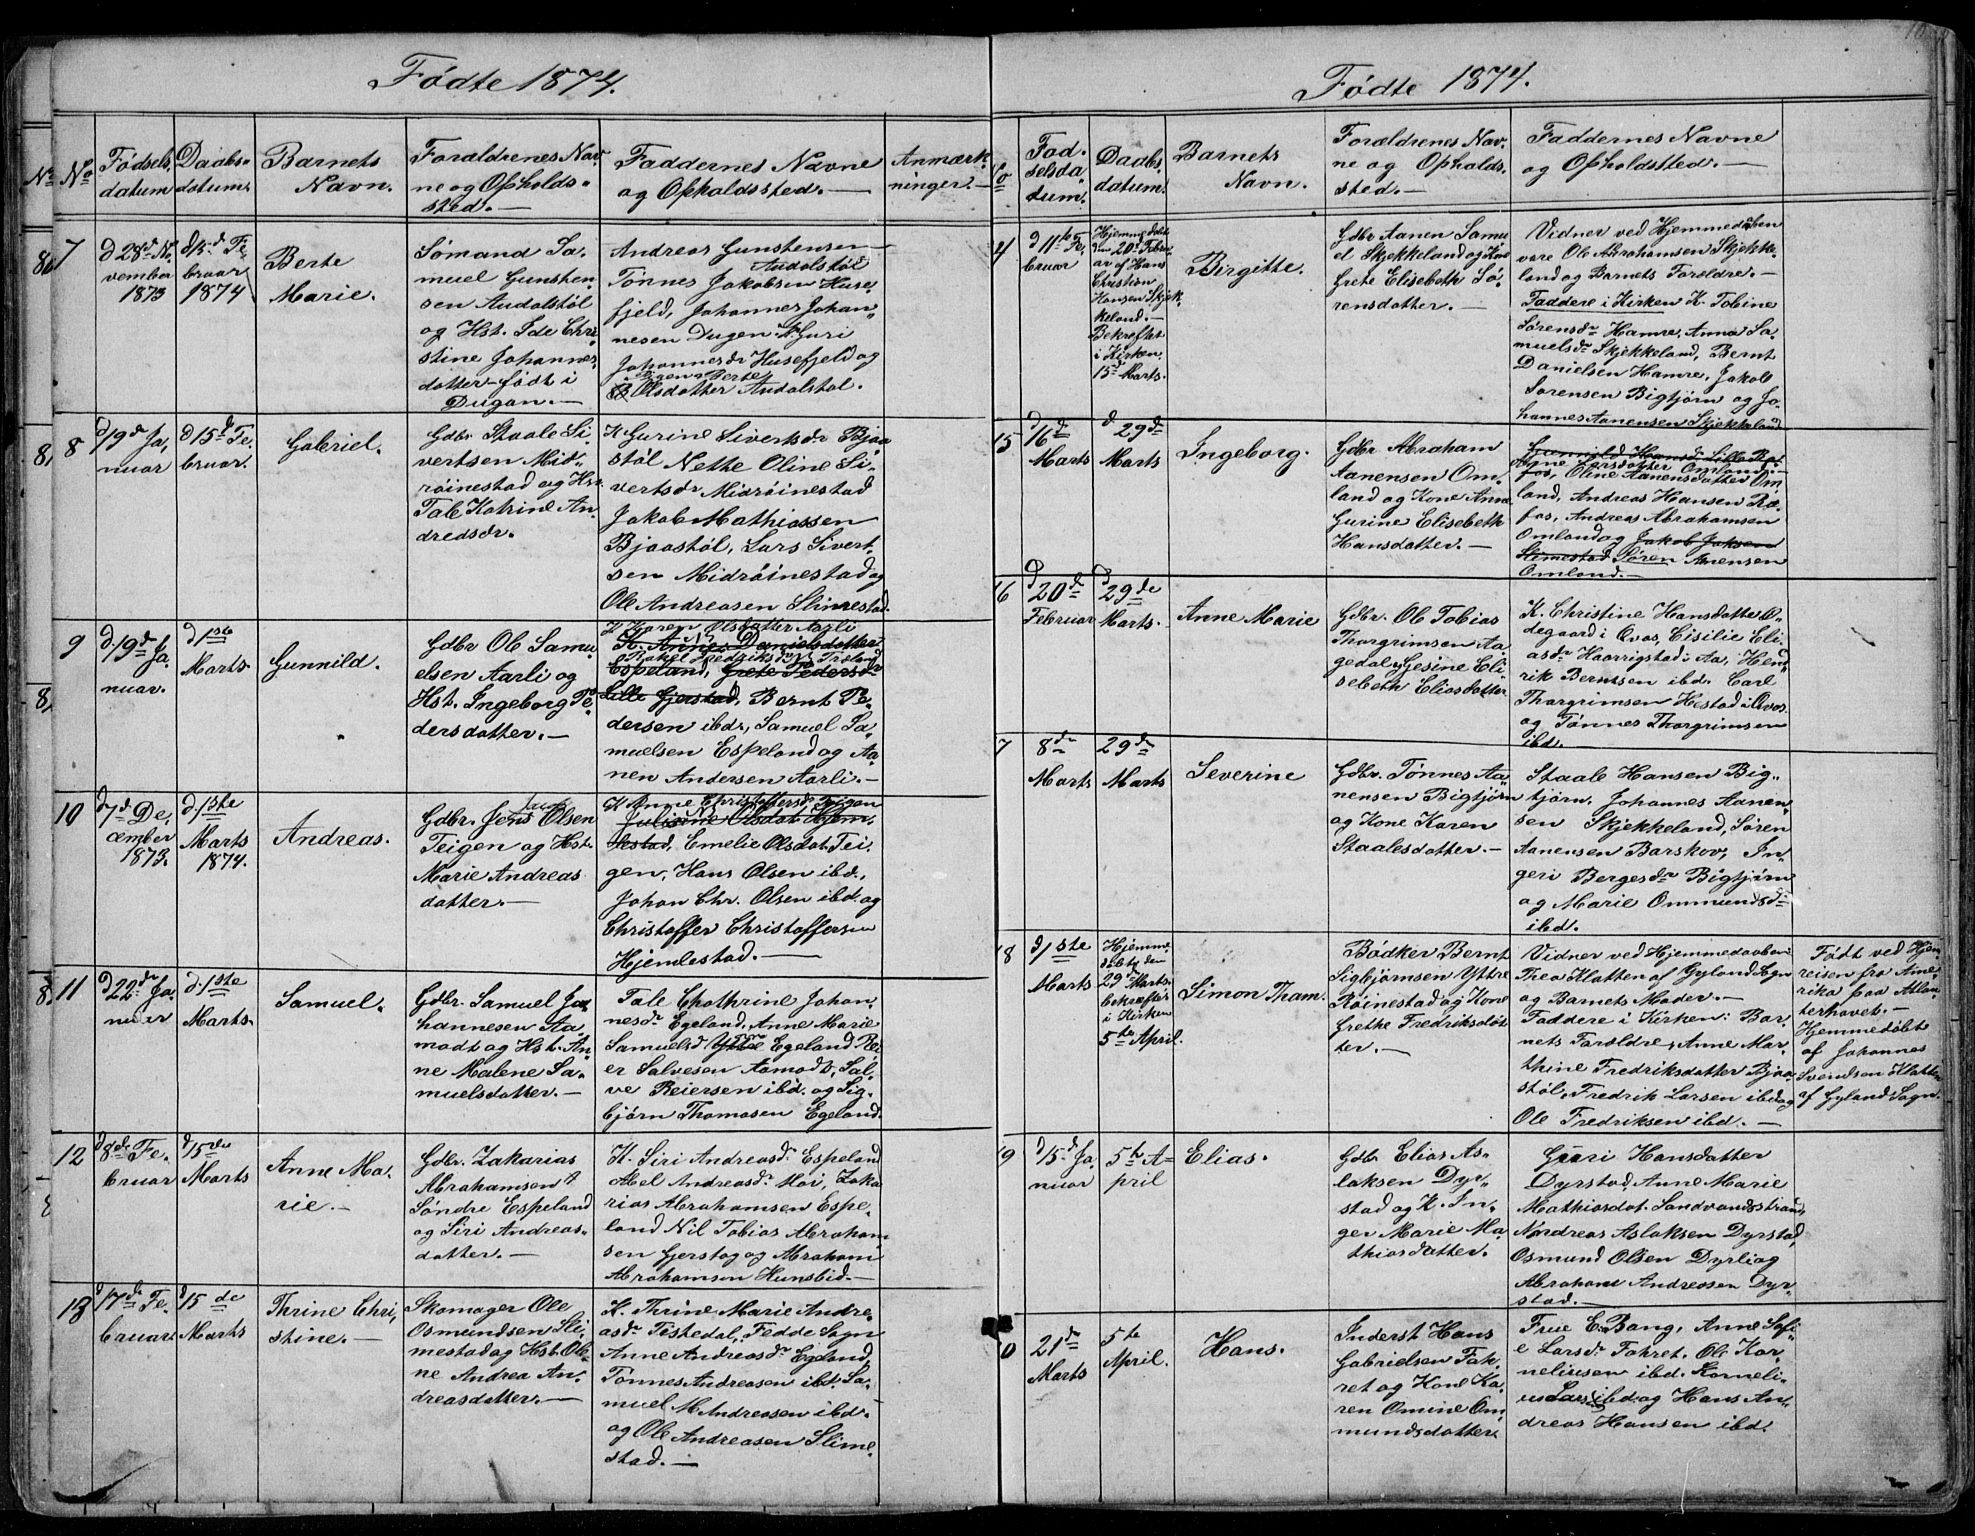 Fødte 1874.
No
Fødsels
datum
Daabs-
datum.
Barnets
Navn.
Forældrenes Nav,
ne og Opholds-
sted.-
Faddernes Navne
og Opholdssted.-
Anmærk
ninger.-
7
d 28de N.
vember
1873
d 15de Fe
bruar
1874
Berte
Marie.
Sømand Sa-
muel Gunsten-
sen Audalstøl
og Hst. Ide Chri
stine Johannes
datter født i
Dugan.-
Andreas Gunstensen
Audalstøl
Tønnes Jakobsen Huse-
fjeld, Johannes Johan-
nesen Dugen K. Guri
Johannesdr Husefjeld og
Berte
Olsdatter Audalstøl.
8
d 19de Ja,
nuar
d 15de Fe.
bruar.
Gabriel.
Gdbr Staale Si-
vertsen Mid-
røinestad og Hst.
Tale Katrine An
dredsdr.
K. Gurine Sivertsdr Bjaa
støl Nette Oline Si-
vertsdr Midrøinestad
Jakob Mathiassen
Bjaastøl, Lars Sivert-
sen Midrøinestad og
Ole Andreasen Slimestad.
9
d. 19de Ja
nuar.
d 1ste
Marts.
Gunnild.
Gdbr Ole Samu-
elsen Aarli og
Hst. Ingeborg Pe
dersdatter.-
K. Karen Olsdatter Aarli
K. Anne Danielsdatter
Rakel Fredriksdr Træland
Espeland, Grete Pedersdr
Lille Gjerstad, Bernt Pe-
dersen ibdr, Samuel Sa-
muelsen Espeland og Aa-
nen Andersen Aarli.-
10
d 7de De,
cember
1873.
d. 1ste
Marts
1874.
Andreas.
Gdbr. Jens Olsen
Teigen og Hst.
Marie Andreas
datter.-
K Anne Christoffersdr Teigen
Juliane Olsdat Hjem-
lestad, Emelie Olsdat. Tei-
gen, Hans Olsen ibd.,
Johan Chr. Olsen ibd. og
Christoffer Christoffersen
Hjemlestad.-
11
d 22de Ja-
nuar
d. 1ste
Marts.
Samuel.
Gdbr. Samuel Jo
hannesen Aa-
modt og Hst. An-
ne Malene Sa-
muelsdatter.-
Tale Chathrine Johan-
nesdr Egeland, Anne Marie
Samuelsd Yttre Egeland Rei
er Salvesen Aamodt, Sal-
ve Reiersen ibd. og Sig-
bjørn Thomasen Egeland.
12
d 8de Fe.
bruar
d 15de
Marts
Anne Ma-
rie.-
Gdbr. Zakarias
Abrahamsen
Søndre Espeland
og Siri Andreas-
datter.-
K. Siri Andreasdr Espeland
Abel Andreasdr Moi, Zaka
rias Abrahamsen Espe-
land Nil Tobias Abraham
sen Gjerstog og Abraham
Abrahamsen Hunsbid.-
13
d 17de Fe-
bruar
d 15de
Marts
Thrine Chri,
stine.-
Skomager Ole
Osmundsen Sli-
mestad og Hst. Ole-
ne Andrea An-
dreasdatter.-
K. Thrine Marie Andre-
asdr Testedal, Fedde Sogn
Anne Andreasdr Egeland,
Tønnes Andreasen ibd. Sa-
muel M. Andreasen ibd.
og Ole Andreasen Slime-
stad.-
Fødte 1874.
Fød-
selsda-
tum.
Daabs-
datum.
Barnets
Navn.
Forældrenes Nav-
ne og Opholds-
sted.-
Faddernes Navne
og Opholdssted.-
4
d 11te Fe-
bruar
Hjemmedøbt
den 20de Febru-
ar af Hans
Christian
Hansen Skjek-
keland.-
Bekræftet
i Kirken
15de Marts.
Birgitte.
Gdbr Aanen Samu
el Skjekkeland og Kone
Grete Elisebeth Sø-
rensdatter.-
Vidner ved Hjemmedaaben
vare Ole Abrahamsen Skjekke-
land og Barnets Forældre.-
Faddere i Kirken K. Tobine
Sørensdr Hamre, Anna Sa-
muelsdr Skjekkeland, Bernt
Danielsen Hamre, Jakob
Sørensen Bigtjørn og Jo-
hannes Aanensen Skjekkeland
15
d 16de
Marts
d 29de
Marts
Ingeborg.
Gdbr Abraham
Aanensen Om-
land og Kone Anne
Gurine Elisebeth
Hansdatter.-
Gunnild Hansdr Lille Ræ
Anne Larsdatter Omland.-
fos, Oline Aanensdatter Om
land, Andreas Hansen Ræ-
fos, Andreas Abrahamsen
Omland og Jakob Jaksen
Slimestad Søren Aanensen
Omland.-
16
d 20de
Februar
d 29de
Marts.
Anne Marie
Gdbr. Ole Tobias
Thorgrimsen Aa-
gedal, Gesine Eli-
sebeth Eliasdatter
K. Christine Hansdatter O-
degaard i Qvas, Cisilie Eli
asdr Haarrigstad i Aa, Hend
rik Berntsen ibd. Carl
Thorgrimsen Hestad i Qvas.
og Tønnes Thorgrimsen
ibd.
7
8de
Marts
29de
Marts
Severine
Gdbr. Tønnes Aa-
nensen Bigtjørn
og Kone Karen
Staalesdatter.-
Staale Hansen Big-
tjørn, Johannes Aanen-
sen Skjekkeland, Søren
Aanensen Barskov, In-
geri Bergesdr Bigtjørn
og Marie Ommundsd.
ibd.
18
d 1ste
Marts
Hjemme-
døbt den
29de Marts.
bekræftet
i Kirken
5te April.
Simon Tham.
Bødker Bernt
Sigbjørnsen Yttre
Røinestad og Kone
Grethe Fredriksdat
ter.-
Vidner ved Hjemmedaaben
Thea Klatten af Gyland Sogn
og Barnets Moder.-
Faddere i Kirken: Bar-
nets Forældre, Anne Mar-
thine Fredriksdatter Bjaa-
støl, Fredrik Larsen ibd og
Ole Fredriksen ibd.-
Født ved Hjem
reisen fra Ame
rika paa Atlan
terhavet.-
Hjemmedøbt
af Johannes
Svendsen Klatten
af Gyland Sogn.
9
d 15de Ja-
nuar
5te A-
pril
Elias.
Gdbr Elias As-
laksen Dyr-
stad og K. In-
ger Marie Ma
thiasdatter.
Guri Hansdatter
Dyrstad, Anne Marie
Mathiasdat. Sandvandsstrand,
Andreas Aslaksen Dyrstad,
Osmund Olsen Dyrli og
Abraham Andreasen Dyr-
stad.-
0
21de
Marts
5te
April.
Hans.
Inderst Hans
Gabrielsen Fak-
ret og Kone Ka-
ren Omine Om
mundsdatter.
Frue E. Bang, Anne Sofi-
e Larsdr Fakret. Ole Kor-
neliusen ibd. Korneli-
us Lars ibd og Hans An-
dreas Hansen ibd.